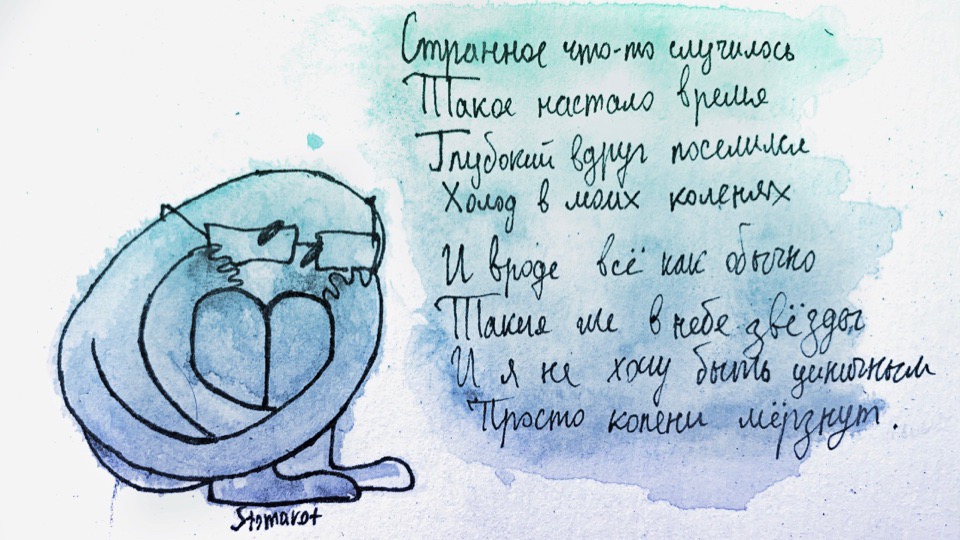 Странное что-то случилось
Такое настало время
Глубокий вдруг поселился
Холод в моих коленях
И вроде всё как обычно
Такие же в небе звёзды
И я не хочу быть циничным
Просто колени мёрзнут.
Stomarot